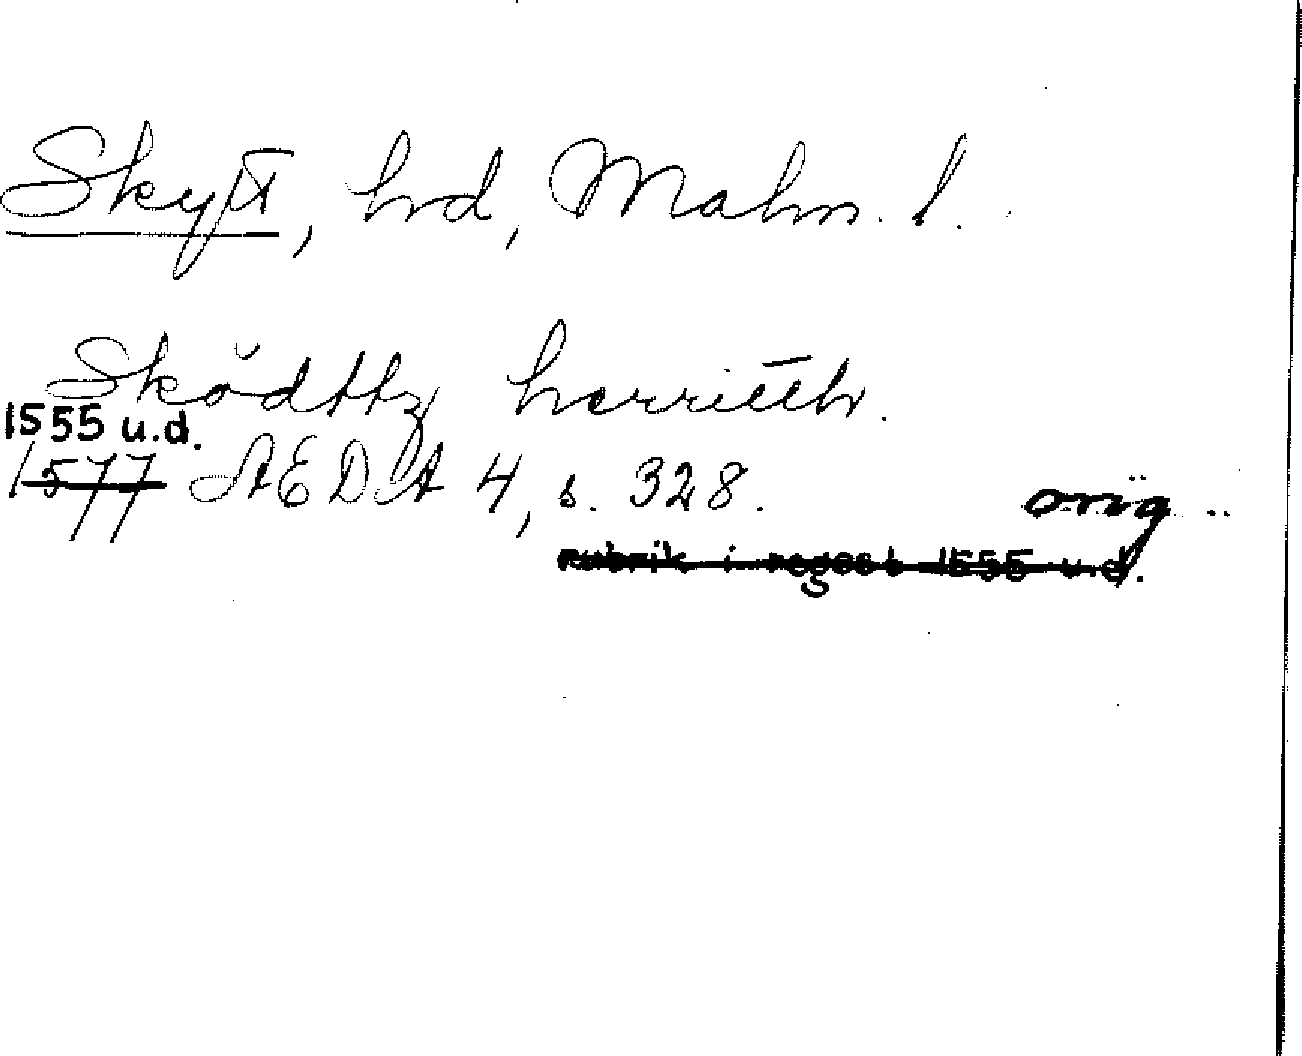 Skytt, hd, Malm. l.
Sködttz herrietth.
1555 u.d.
1577 AEDA 4, s. 328. orig.
rubrik i regest 1555 u.d.